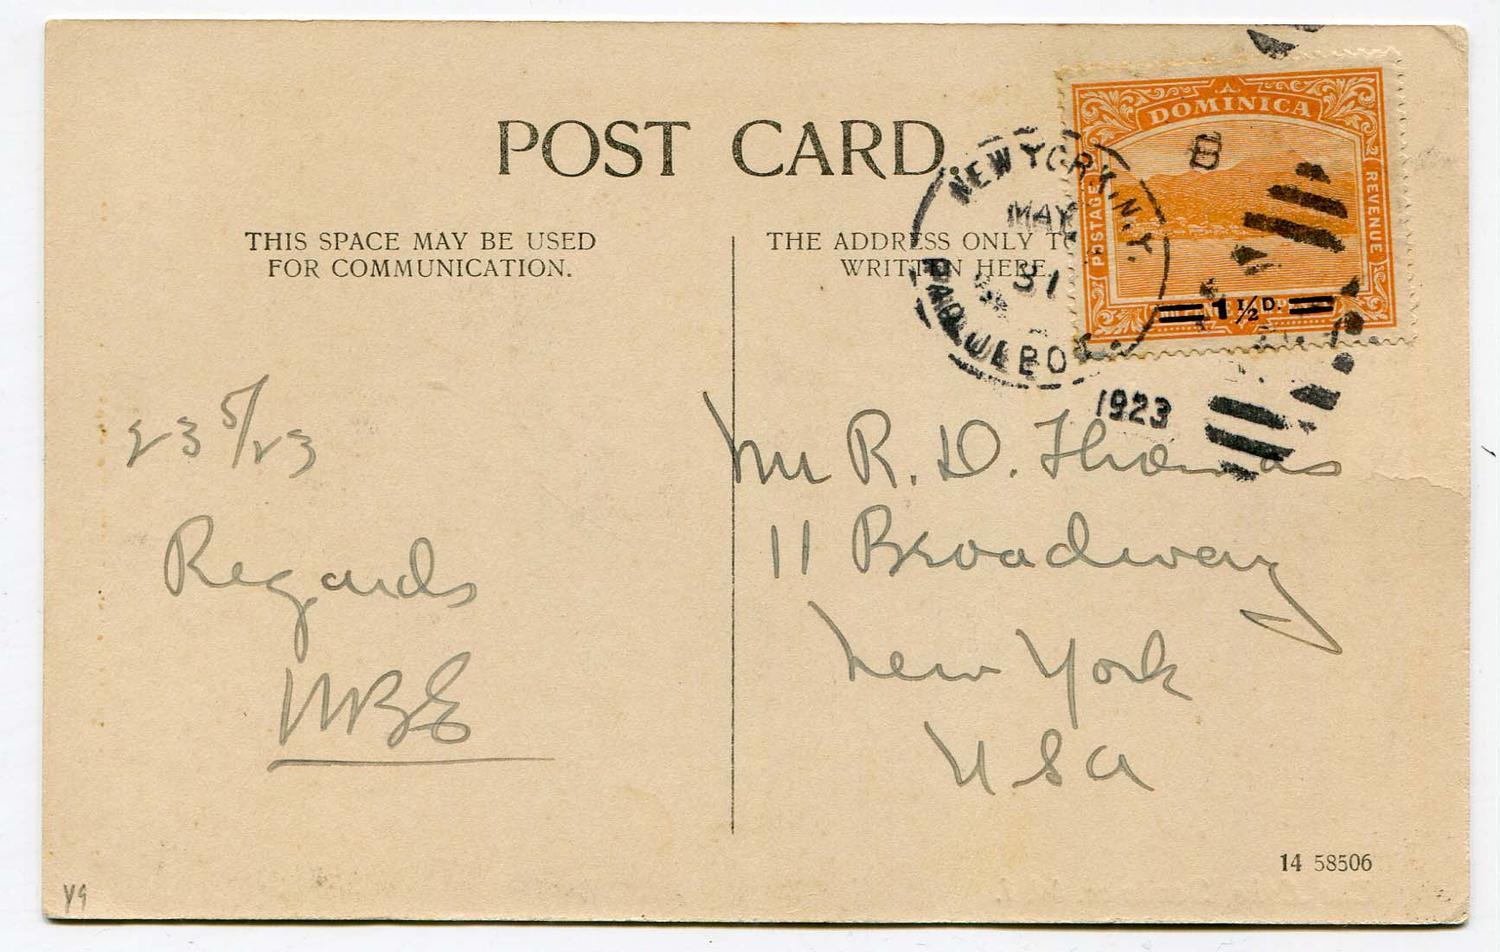 POST CARD.
THIS SPACE MAY BE USED
FOR COMMUNICATION.
THE ADDRESS ONLY TO
WRITTEN HERE.
DOMINICA
POSTAGE
REVENUE
1½D.
B
NEW YORK, N.Y.
MAY
31
PAQUEBOT
1923
23 5/23
Regards
WBE
Mr R. D. Thomas
11 Broadway
New York
USA
14 58506
Y9